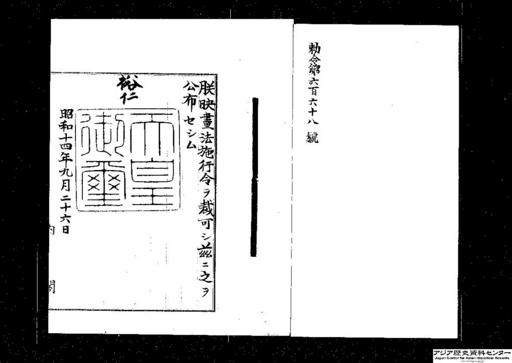 勅令第六百六十八號
朕映畫法施行令ヲ裁可シ茲ニ之ヲ
公布セシム
裕仁
天皇
御璽
昭和十四年九月二十六日
内閣
アジア歴史資料センター
Japan Center for Asian Historical Records